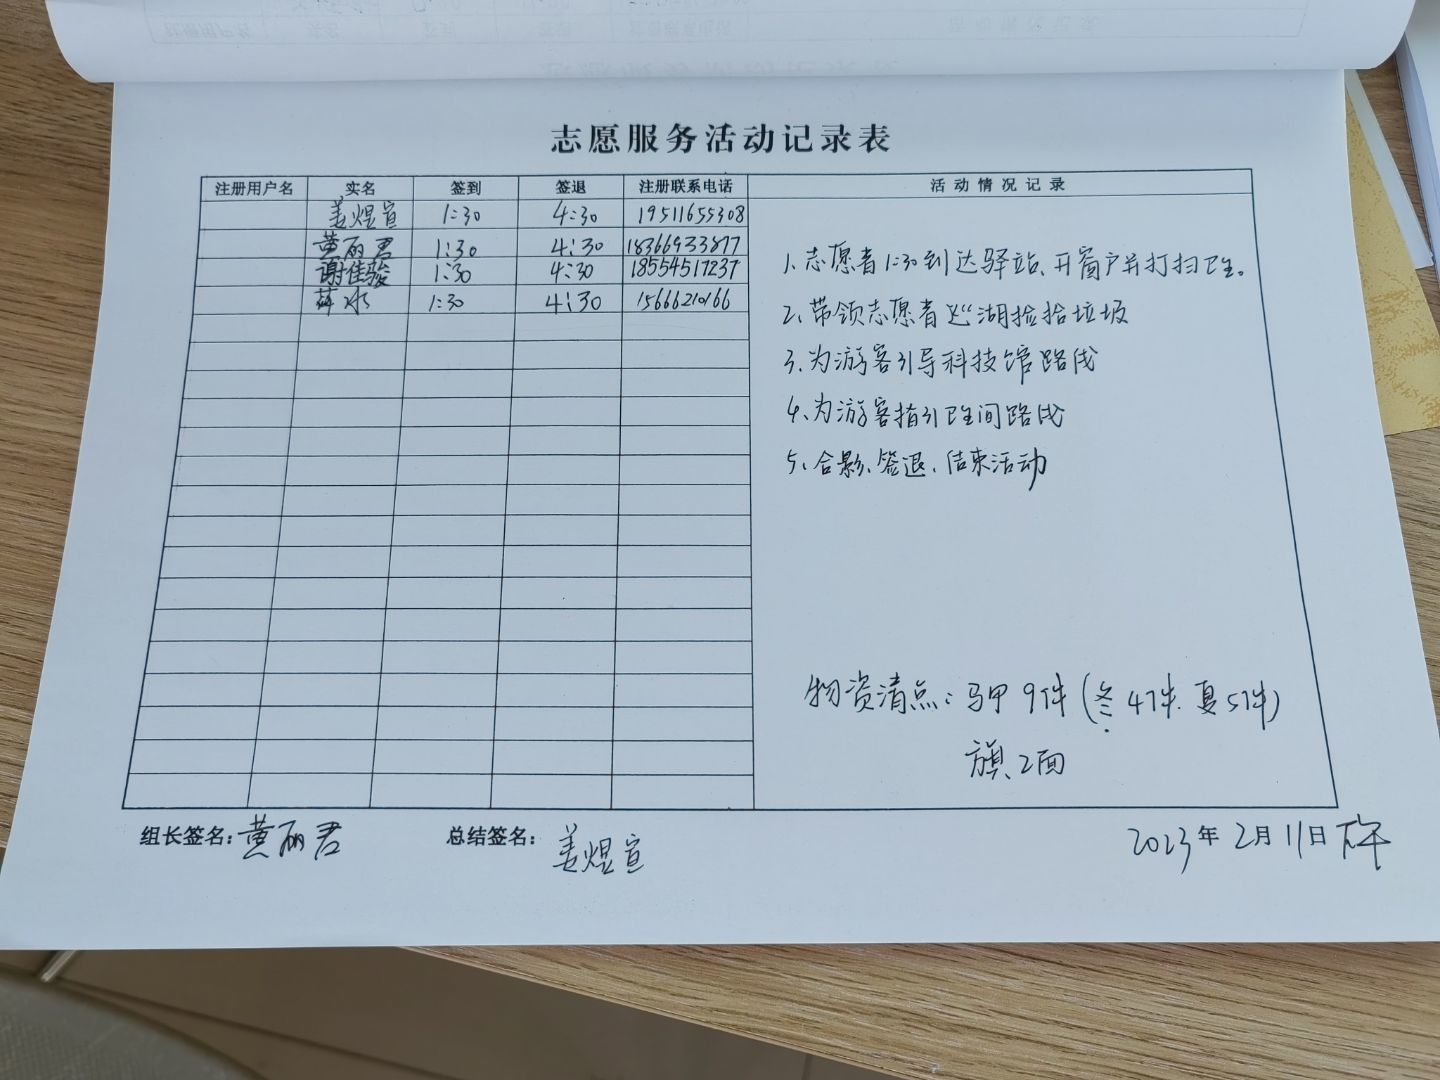 志愿服务活动记录表
注册用户名 实名 签到 签退 注册联系电话 活动情况记录
姜煜宣 1:30 4:30 19511655308
黄丽君 1:30 4:30 18366933877
谢佳骏 1:30 4:30 18554517237
萍水 1:30 4:30 15666210166
1、志愿者1:30到达驿站、开窗户并打扫卫生。
2、带领志愿者巡湖捡拾垃圾
3、为游客引导科技馆路线
4、为游客指引卫生间路线
5、合影、签退、结束活动
物资清点:马甲9件(冬4件.夏5件)
旗、2面
组长签名:黄丽君 总结签名:姜煜宣 2023年2月11日下午